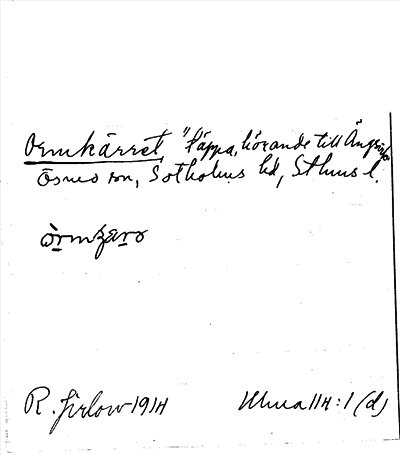 Ormkärret, "täppa, hörande till Ängsö
Ösmo sn, Sotholms hd, Sthms l.
R. Jirlow 1914
Uma 114:1 (d)